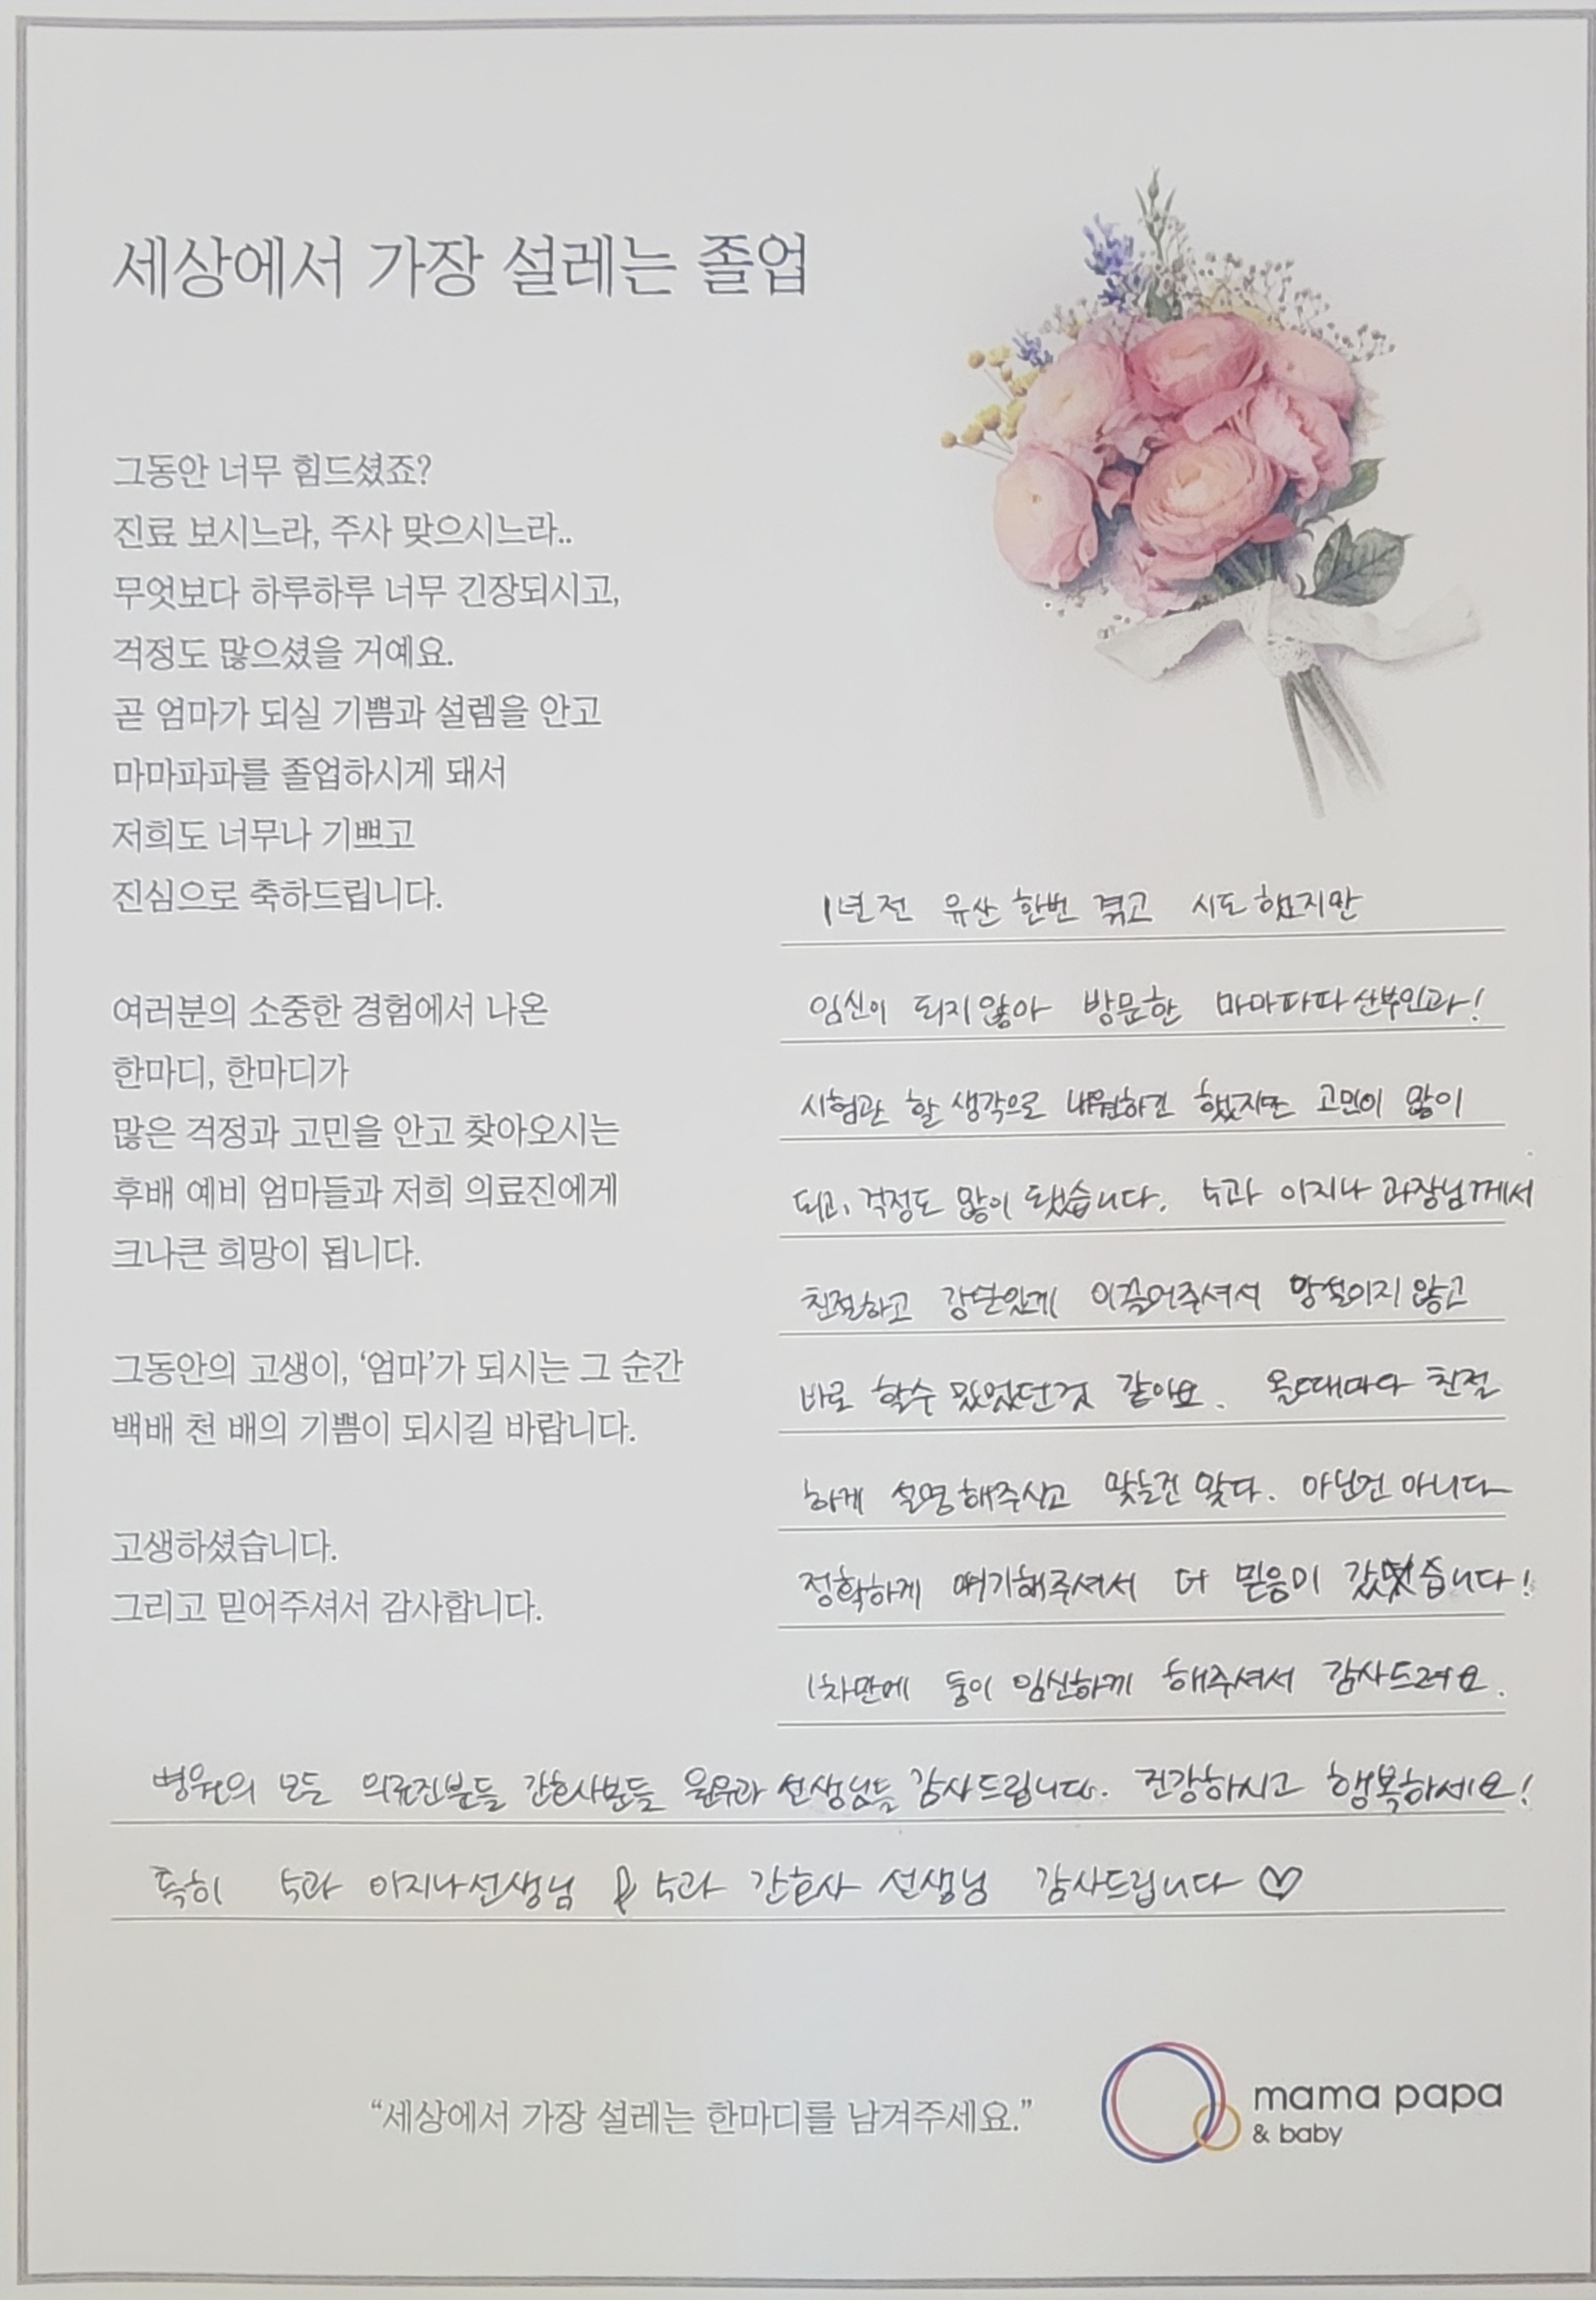 세상에서 가장 설레는 졸업
그동안 너무 힘드셨죠?
진료 보시느라, 주사 맞으시느라..
무엇보다 하루하루 너무 긴장되시고,
걱정도 많으셨을 거예요.
곧 엄마가 되실 기쁨과 설렘을 안고
마마파파를 졸업하시게 돼서
저희도 너무나 기쁘고
진심으로 축하드립니다.
여러분의 소중한 경험에서 나온
한마디, 한마디가
많은 걱정과 고민을 안고 찾아오시는
후배 예비 엄마들과 저희 의료진에게
크나큰 희망이 됩니다.
그동안의 고생이, ‘엄마’가 되시는 그 순간
백배 천 배의 기쁨이 되시길 바랍니다.
고생하셨습니다.
그리고 믿어주셔서 감사합니다.
1년전 유산 한번 겪고 시도했지만
임신이 되지않아 방문한 마마파파산부인과!
시험관 할 생각으로 내원하긴 했지만 고민이 많이
되고, 걱정도 많이 됐습니다. 5과 이지나 과장님께서
친절하고 강단있게 이끌어주셔서 망설이지 않고
바로 할수 있었던것 같아요. 올때마다 친절
하게 설명해주시고 맞는건 맞다. 아닌건 아니다
정확하게 얘기해주셔서 더 믿음이 갔습니다!
1차만에 둥이 임신하게 해주셔서 감사드려요.
병원의 모든 의료진분들 간호사분들 원무과 선생님들 감사드립니다. 건강하시고 행복하세요!
특히 5과 이지나선생님 & 5과 간호사 선생님 감사드립니다♡
“세상에서 가장 설레는 한마디를 남겨주세요.”
mama papa
& baby